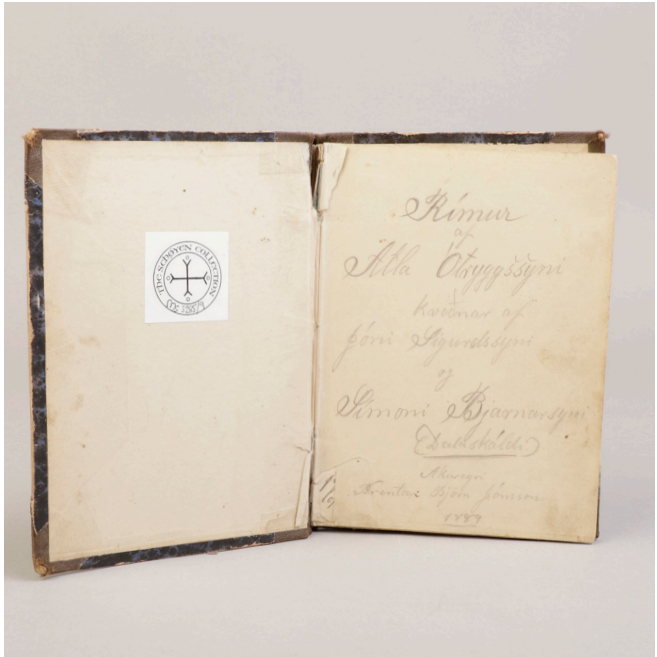 THE SCHØYEN COLLECTION
Rímur
af
Atla Ótryggssyni
kveðnar af
Þórði Sigurdssyni
og
Símoni Bjarnarsyni
(Dalaskáldi)
Akureyri
Prentari Björn Jónsson
1889